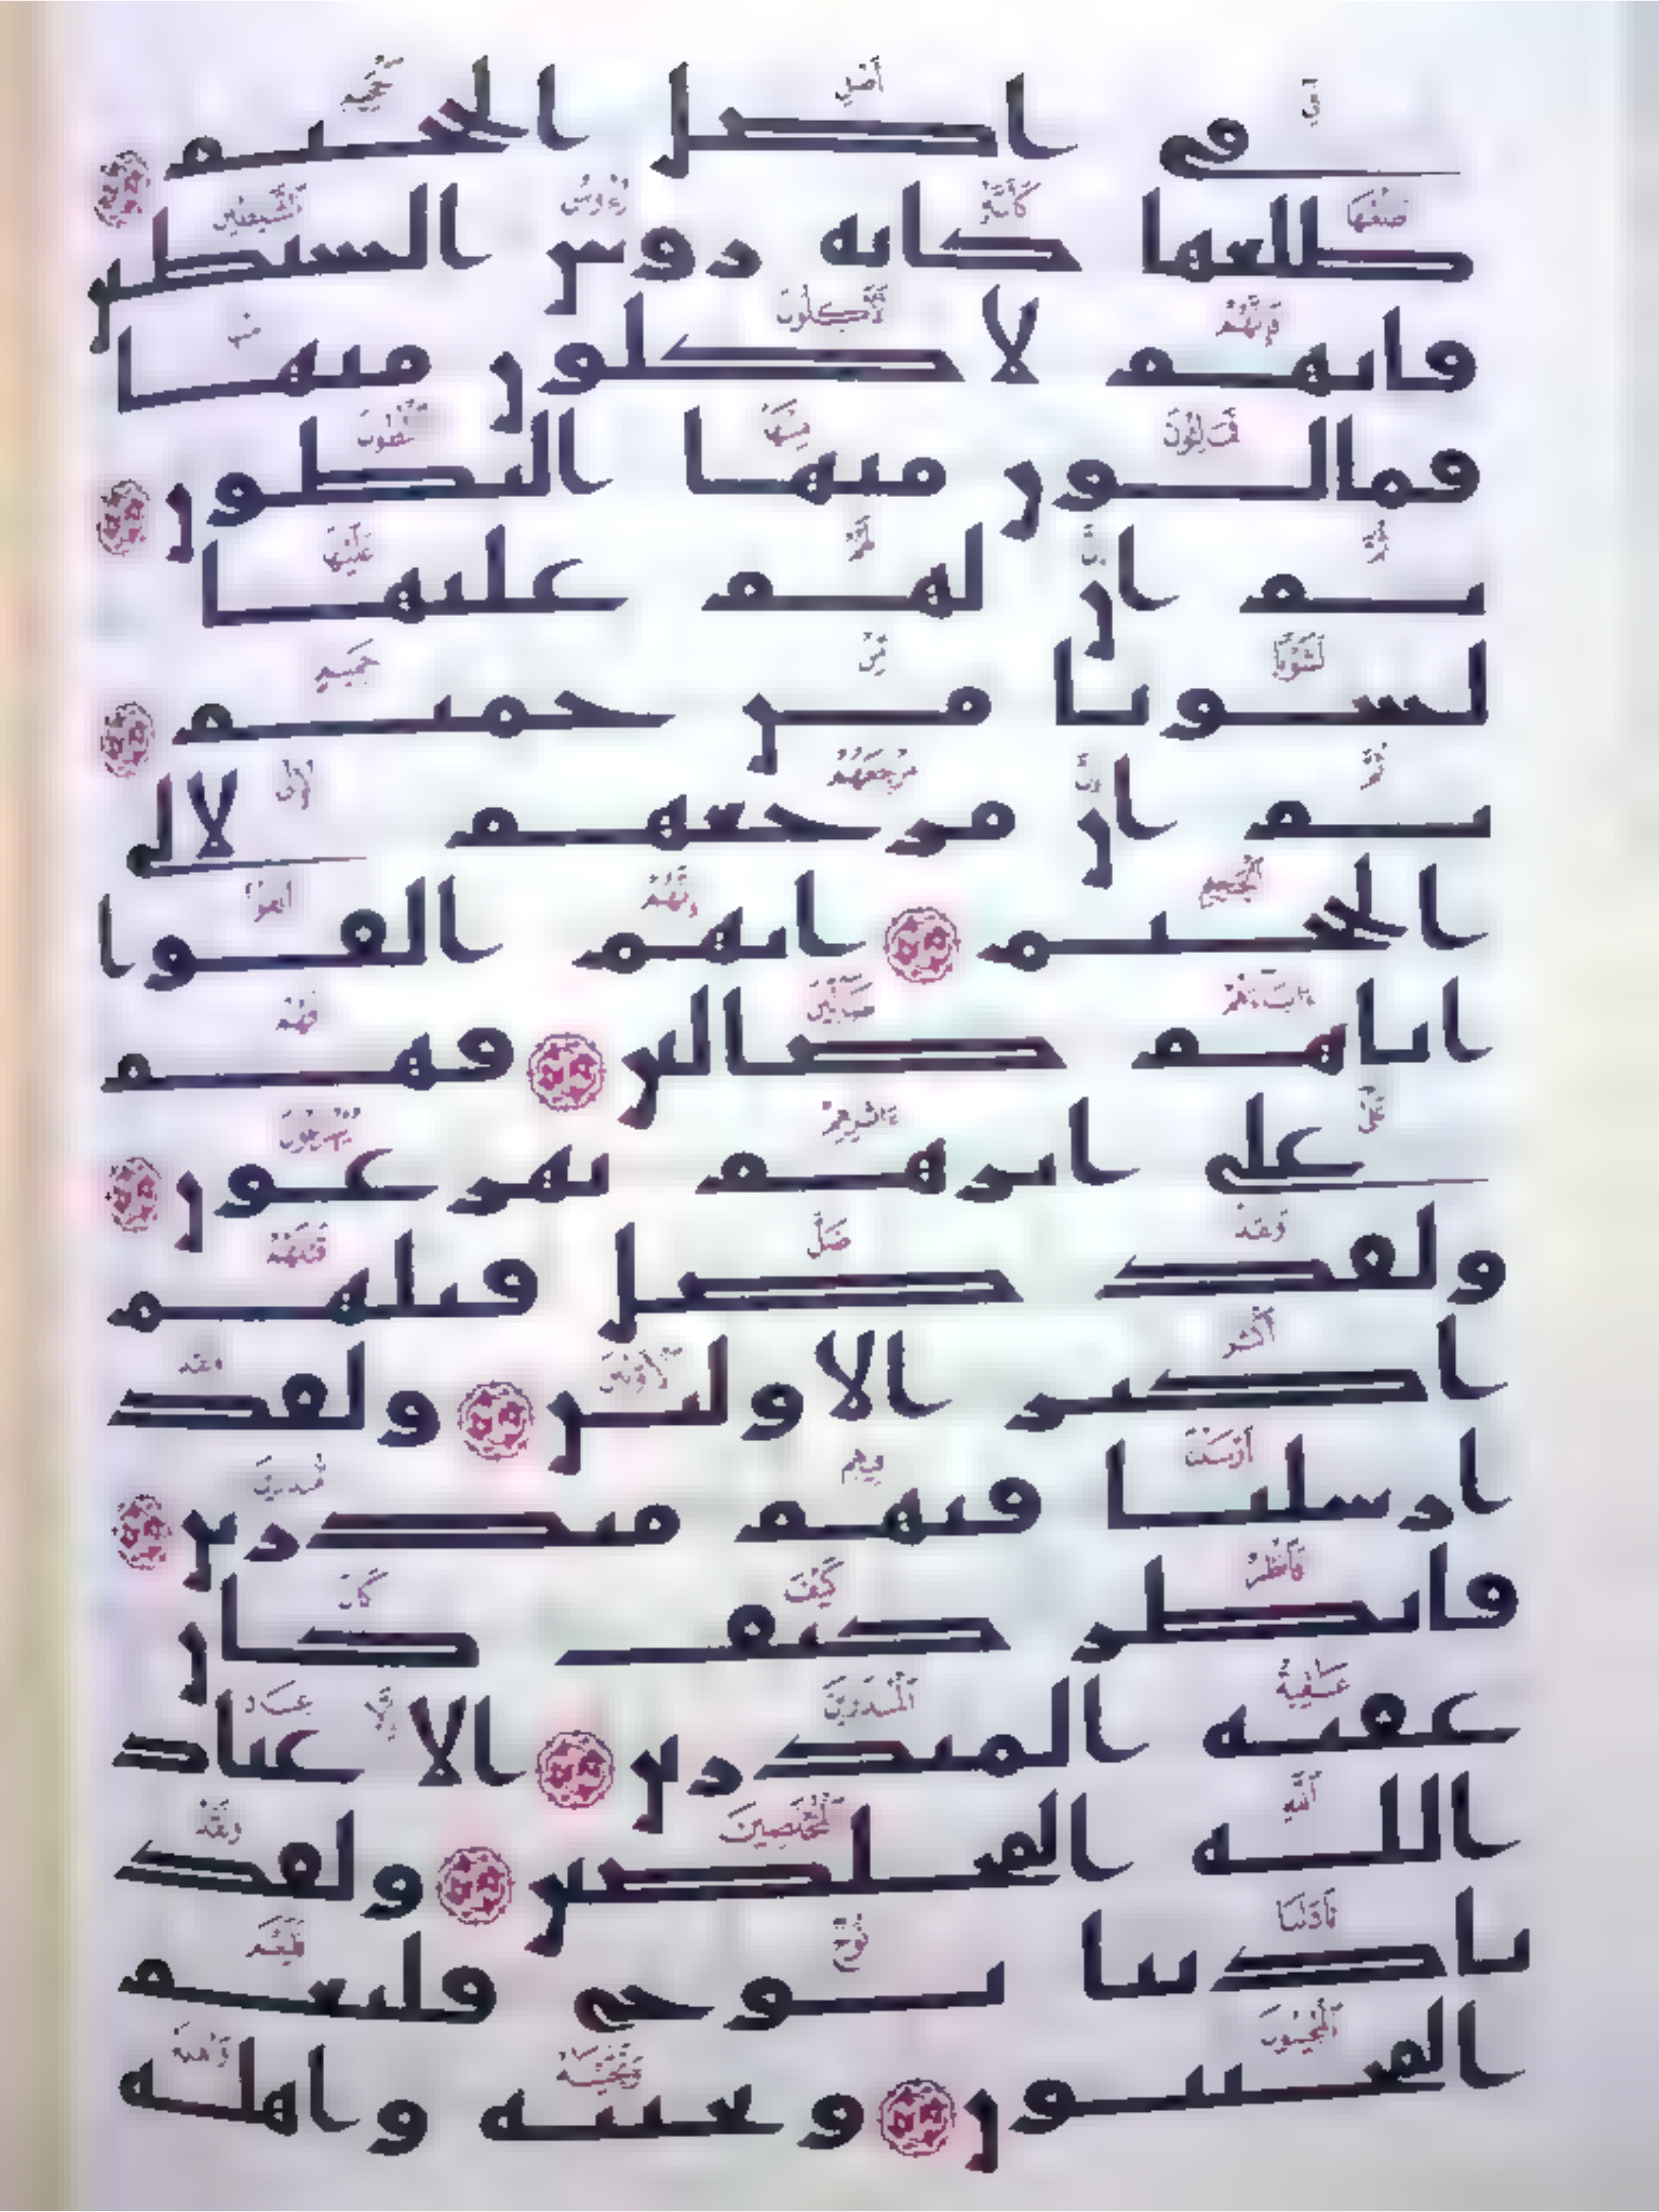 في اصل الجحيم
طلعها كانه روس الشيطين
فانهم لاكلون منها
فمالون منها البطون
ثم ان لهم عليها
لشوبا من حميم
ثم ان مرجعهم لالى
الجحيم انهم الفوا
اباهم ضالين فهم
على اثرهم يهرعون
ولقد ضل قبلهم
اكثر الاولين ولقد
ارسلنا فيهم منذرين
فانظر كيف كان
عقبة المنذرين الا عباد
الله المخلصين ولقد
نادينا نوح فلنعم
المجيبون ونجينه واهله